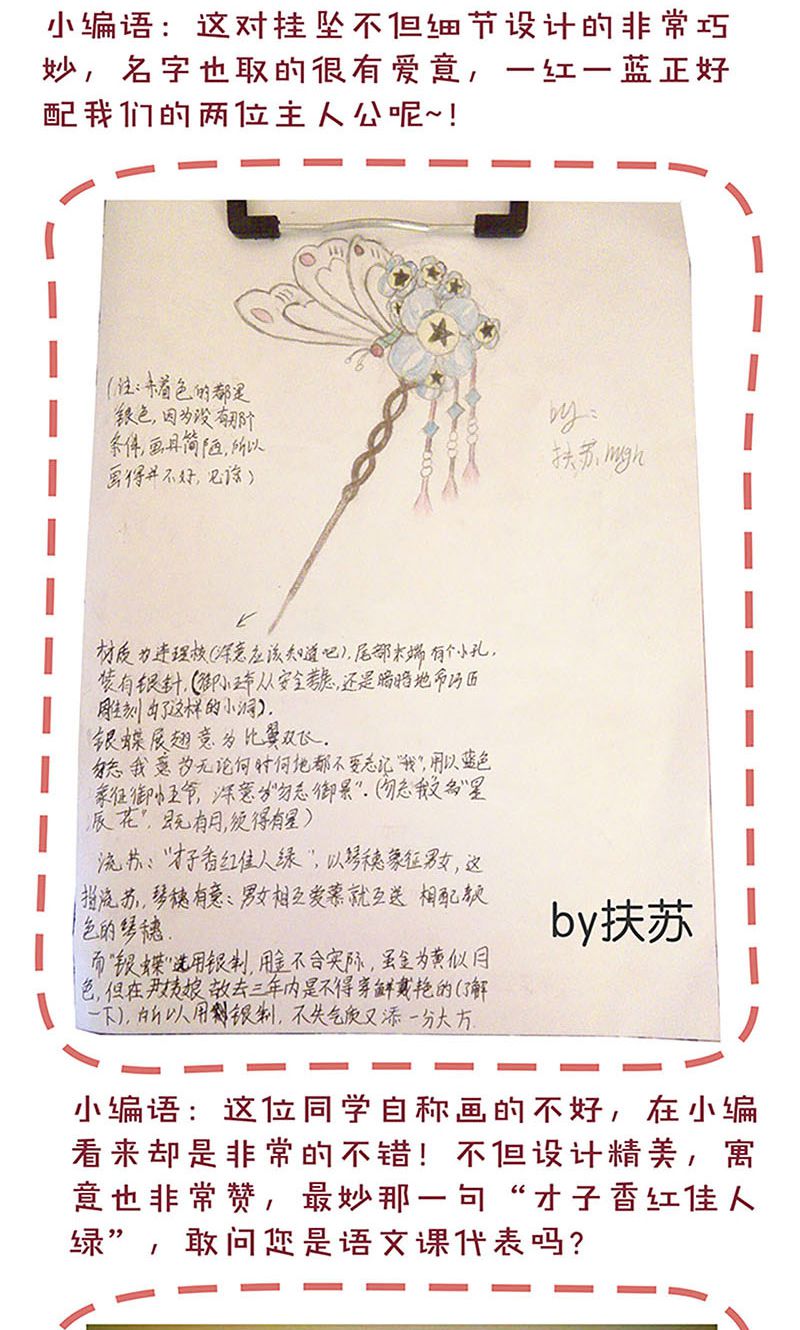 小编语：这对挂坠不但细节设计的非常巧
妙，名字也取的很有爱意，一红一蓝正好
配我们的两位主人公呢~！
(注：未着色的都是
银色，因为没有那个
条件，画具简陋，所以
画得并不好，见谅)
by：
扶苏
材质为连理枝(深意应该知道吧)，尾部末端有个小孔，
装有银针，(御小王爷从安全考虑，还是暗暗地命巧匠
雕刻出了这样的小洞)。
银蝶展翅意为比翼双飞。
勿忘我意为无论何时何地都不要忘记“我”，用以蓝色
象征御小王爷，深意为“勿忘御景”。(勿忘我又名“星
辰花”，既有月，须得有星)
流苏：“才子香红佳人绿”，以琴穗象征男女，这
指流苏，琴穗有意：男女相互爱慕就互送 相配颜
色的琴穗.
而“银蝶”选用银制，用金不合实际，虽金为黄似月
色，但在尹姑娘故去三年内是不得穿鲜戴艳的(了解
一下)，所以用银制，不失气质又添一分大方.
by扶苏
小编语：这位同学自称画的不好，在小编
看来却是非常的不错！不但设计精美，寓
意也非常赞，最妙那一句“才子香红佳人
绿”，敢问您是语文课代表吗？